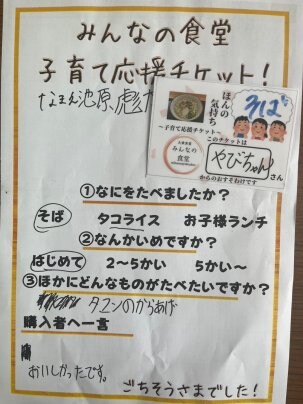 みんなの食堂
子育て応援チケット!
なまえ池原彪
ほんの
気持ち
3ばん
〜子育て応援チケット〜
みんなの
食堂
このチケットは
やびちゃんさん
からのおすそわけです
①なにをたべましたか?
そば タコライス お子様ランチ
②なんかいめですか?
はじめて 2〜5かい 5かい〜
③ほかにどんなものがたべたいですか?
タコンのからあげ
購入者へ一言
おいしかったです。
ごちそうさまでした!